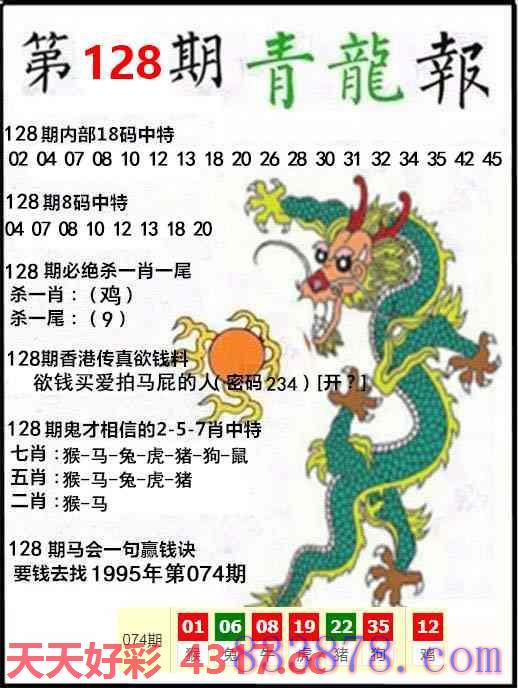 第128期青龍報
128期内部18码中特
02 04 07 08 10 12 13 18 20 26 28 30 31 32 34 35 42 45
128期8码中特
04 07 08 10 12 13 18 20
128期必绝杀一肖一尾
杀一肖：（鸡）
杀一尾：（9）
128期香港传真欲钱料
欲钱买爱拍马屁的人（密码234）[开？]
128期鬼才相信的2-5-7肖中特
七肖：猴-马-兔-虎-猪-狗-鼠
五肖：猴-马-兔-虎-猪
二肖：猴-马
128期马会一句赢钱诀
要钱去找1995年第074期
074期 01 06 08 19 22 35 12
猴 兔 牛 虎 猪 狗 鸡
天天好彩 4317.cc
832878.com